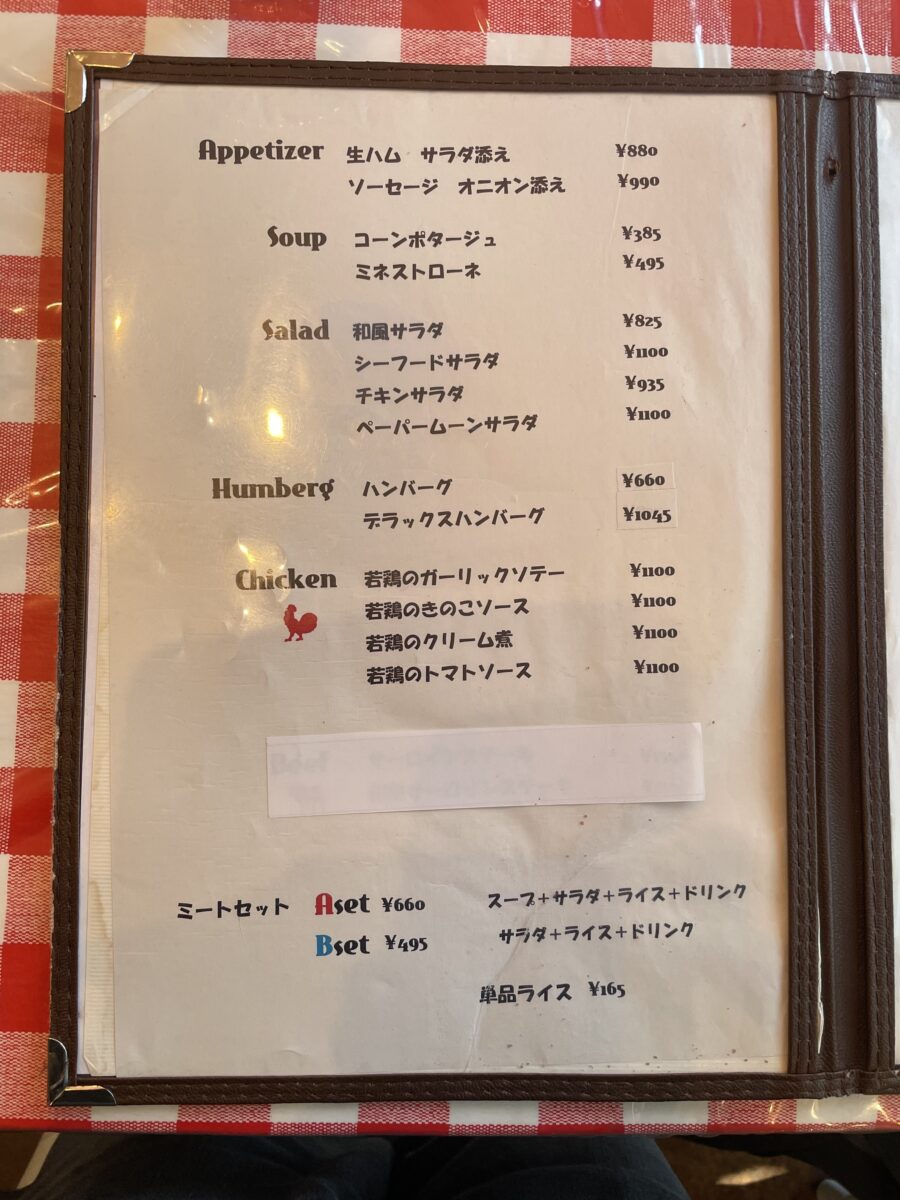 Appetizer 生ハム サラダ添え ¥880
ソーセージ オニオン添え ¥990
Soup コーンポタージュ ¥385
ミネストローネ ¥495
Salad 和風サラダ ¥825
シーフードサラダ ¥1100
チキンサラダ ¥935
ペーパームーンサラダ ¥1100
Humberg ハンバーグ ¥660
デラックスハンバーグ ¥1045
Chicken 若鶏のガーリックソテー ¥1100
若鶏のきのこソース ¥1100
若鶏のクリーム煮 ¥1100
若鶏のトマトソース ¥1100
ミートセット Aset ¥660 スープ+サラダ+ライス+ドリンク
Bset ¥495 サラダ+ライス+ドリンク
単品ライス ¥165